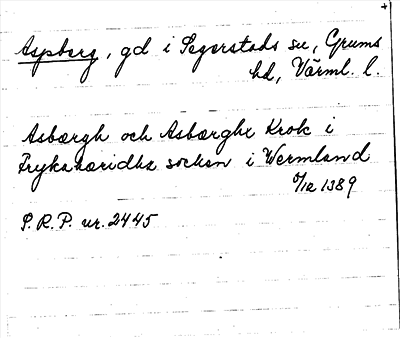 Aspberg, gd i Segerstads sn, Grums
hd, Värml. l.
Asbærgh och Asbærghx Krok i
Frykahæridhx socken i Wermland
1389
S.R.P. nr. 2445